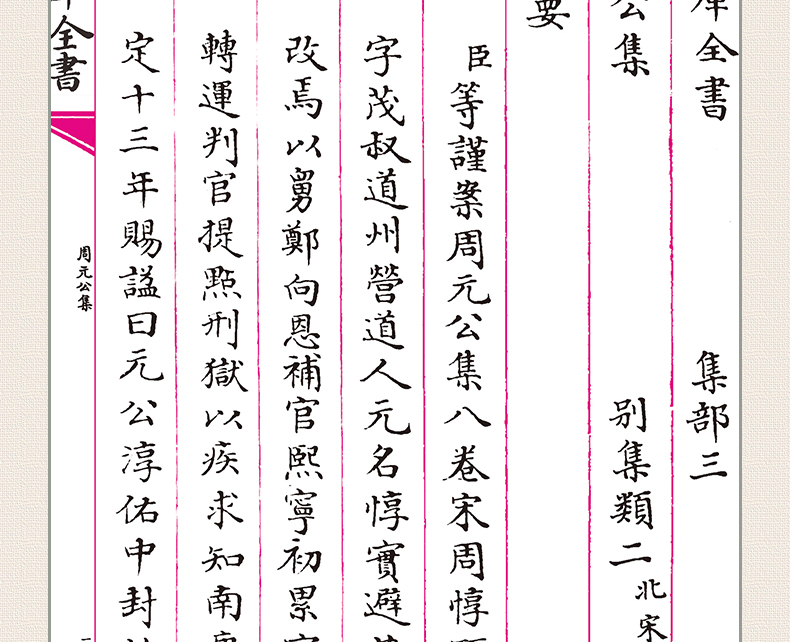 全書 集部三
公集 別集類二 北宋
要
臣等謹案周元公集八卷宋周惇
字茂叔道州營道人元名惇實避
改焉以舅鄭向恩補官熙寧初累
轉運判官提點刑獄以疾求知南
定十三年賜諡曰元公淳佑中封
全書
周元公集